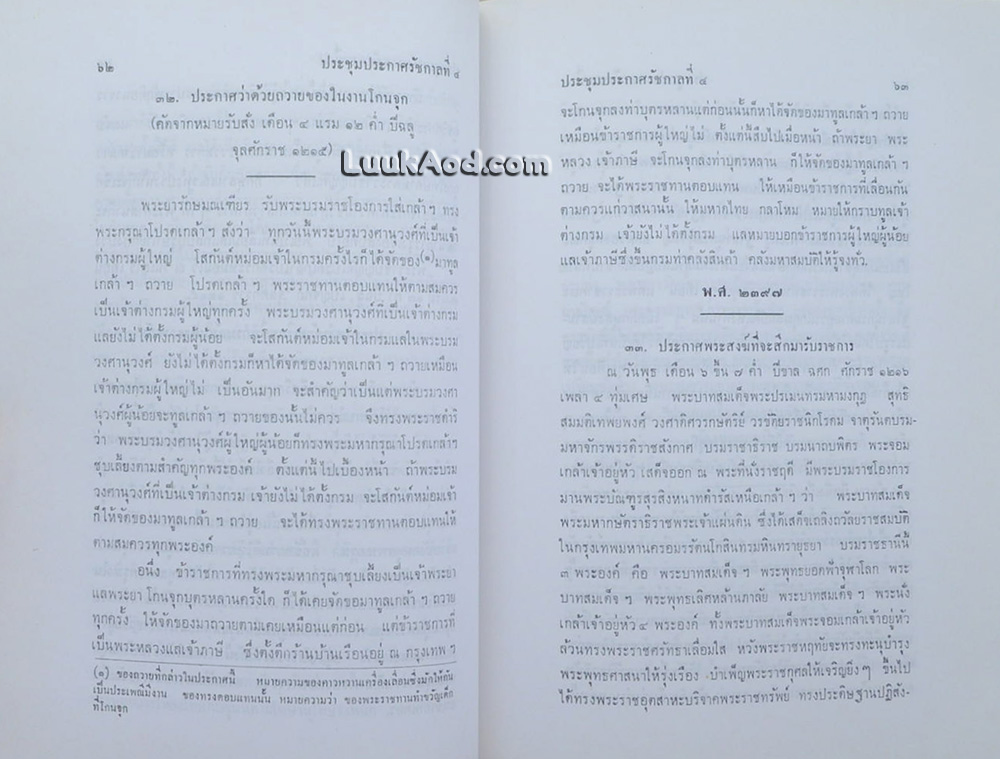 ๖๒
ประชุมประกาศรัชกาลที่ ๔
๓๒. ประกาศว่าด้วยถวายของในงานโกนจุก
(คัดจากหมายรับสั่ง เดือน ๔ แรม ๑๒ ค่ำ ปีฉลู
จุลศักราช ๑๒๑๕)
LuukAod.com
พระยารักษมณเฑียร รับพระบรมราชโองการใส่เกล้าฯ ทรง
พระกรุณาโปรดเกล้าฯ สั่งว่า ทุกวันนี้พระบรมวงศานุวงศ์ที่เป็นเจ้า
ต่างกรมผู้ใหญ่ โสกันต์หม่อมเจ้าในกรมครั้งไรก็ได้จัดของ(๑)มาทูล
เกล้า ฯ ถวาย โปรดเกล้า ฯ พระราชทานตอบแทนให้ตามสมควร
เป็นเจ้าต่างกรมผู้ใหญ่ทุกครั้ง พระบรมวงศานุวงศ์ที่เป็นเจ้าต่างกรม
แลยังไม่ได้ตั้งกรมผู้น้อย จะโสกันต์หม่อมเจ้าในกรมแลในพระบรม
วงศานุวงศ์ ยังไม่ได้ตั้งกรมก็หาได้จัดของมาทูลเกล้า ฯ ถวายเหมือน
เจ้าต่างกรมผู้ใหญ่ไม่ เป็นอันมาก จะสำคัญว่าเป็นแต่พระบรมวงศา
นุวงศ์ผู้น้อยจะทูลเกล้า ฯ ถวายของนั้นไม่ควร จึงทรงพระราชดำริ
ว่า พระบรมวงศานุวงศ์ผู้ใหญ่ผู้น้อยก็ทรงพระมหากรุณาโปรดเกล้าฯ
ชุบเลี้ยงตามสำคัญทุกพระองค์ ตั้งแต่นี้ไปเบื้องหน้า ถ้าพระบรม
วงศานุวงศ์ที่เป็นเจ้าต่างกรม เจ้ายังไม่ได้ตั้งกรม จะโสกันต์หม่อมเจ้า
ก็ให้จัดของมาทูลเกล้า ฯ ถวาย จะได้ทรงพระราชทานตอบแทนให้
ตามสมควรทุกพระองค์
อนึ่ง ข้าราชการที่ทรงพระมหากรุณาชุบเลี้ยงเป็นเจ้าพระยา
แลพระยา โกนจุกบุตรหลานครั้งใด ก็ได้เคยจัดของมาทูลเกล้า ฯ ถวาย
ทุกครั้ง ให้จัดของมาถวายตามเคยเหมือนแต่ก่อน แต่ข้าราชการที่
เป็นพระหลวงแลเจ้าภาษี ซึ่งตั้งตึกร้านบ้านเรือนอยู่ ณ กรุงเทพ ฯ
(๑) ของถวายที่กล่าวในประกาศนี้ หมายความของคาวหวานเครื่องเลื่อนซึ่งมักให้กัน
เป็นประเพณีมีงาน ของทรงตอบแทนนั้น หมายความว่า ของพระราชทานทำขวัญเด็ก
ที่โกนจุก
ประชุมประกาศรัชกาลที่ ๔
๖๓
จะโกนจุกลงท่าบุตรหลานแต่ก่อนนั้นก็หาได้จัดของมาทูลเกล้า ฯ ถวาย
เหมือนข้าราชการผู้ใหญ่ไม่ ตั้งแต่นี้สืบไปเมื่อหน้า ถ้าพระยา พระ
หลวง เจ้าภาษี จะโกนจุกลงท่าบุตรหลาน ก็ให้จัดของมาทูลเกล้า ฯ
ถวาย จะได้พระราชทานตอบแทน ให้เหมือนข้าราชการที่เลื่อนกัน
ตามควรแก่วาสนานั้น ให้มหาดไทย กลาโหม หมายให้กราบทูลเจ้า
ต่างกรม เจ้ายังไม่ได้ตั้งกรม แลหมายบอกข้าราชการผู้ใหญ่ผู้น้อย
แลเจ้าภาษีซึ่งขึ้นกรมท่าคลังสินค้า คลังมหาสมบัติให้รู้จงทั่ว.
พ.ศ. ๒๓๙๗
๓๓. ประกาศพระสงฆ์ที่จะสึกมารับราชการ
ณ วันพุธ เดือน ๖ ขึ้น ๗ ค่ำ ปีขาล ฉศก ศักราช ๑๒๑๖
เพลา ๔ ทุ่มเศษ พระบาทสมเด็จพระปรเมนทรมหามงกุฎ สุทธิ
สมมติเทพยพงศ์ วงศาดิศวรกษัตริย์ วรขัติยราชนิกโรดม จาตุรันตบรม-
มหาจักรพรรดิราชสังกาศ บรมราชาธิราช บรมนาถบพิตร พระจอม
เกล้าเจ้าอยู่หัว เสด็จออก ณ พระที่นั่งราชฤดี มีพระบรมราชโองการ
มานพระบัณฑูรสุรสิงหนาทดำรัสเหนือเกล้า ฯ ว่า พระบาทสมเด็จ
พระมหากษัตราธิราชพระเจ้าแผ่นดิน ซึ่งได้เสด็จเถลิงถวัลยราชสมบัติ
ในกรุงเทพมหานครอมรรัตนโกสินทรมหินทรายุธยา บรมราชธานีนี้
๓ พระองค์ คือ พระบาทสมเด็จ ฯ พระพุทธยอดฟ้าจุฬาโลก พระ
บาทสมเด็จ ฯ พระพุทธเลิศหล้านภาลัย พระบาทสมเด็จ ฯ พระนั่ง
เกล้าเจ้าอยู่หัว ๔ พระองค์ ทั้งพระบาทสมเด็จพระจอมเกล้าเจ้าอยู่หัว
ล้วนทรงพระราชศรัทธาเลื่อมใส หวังพระราชหฤทัยจะทรงทะนุบำรุง
พระพุทธศาสนาให้รุ่งเรือง บำเพ็ญพระราชกุศลให้เจริญยิ่ง ๆ ขึ้นไป
ได้ทรงพระราชอุตสาหะบริจาคพระราชทรัพย์ ทรงประดิษฐานปฏิสัง-